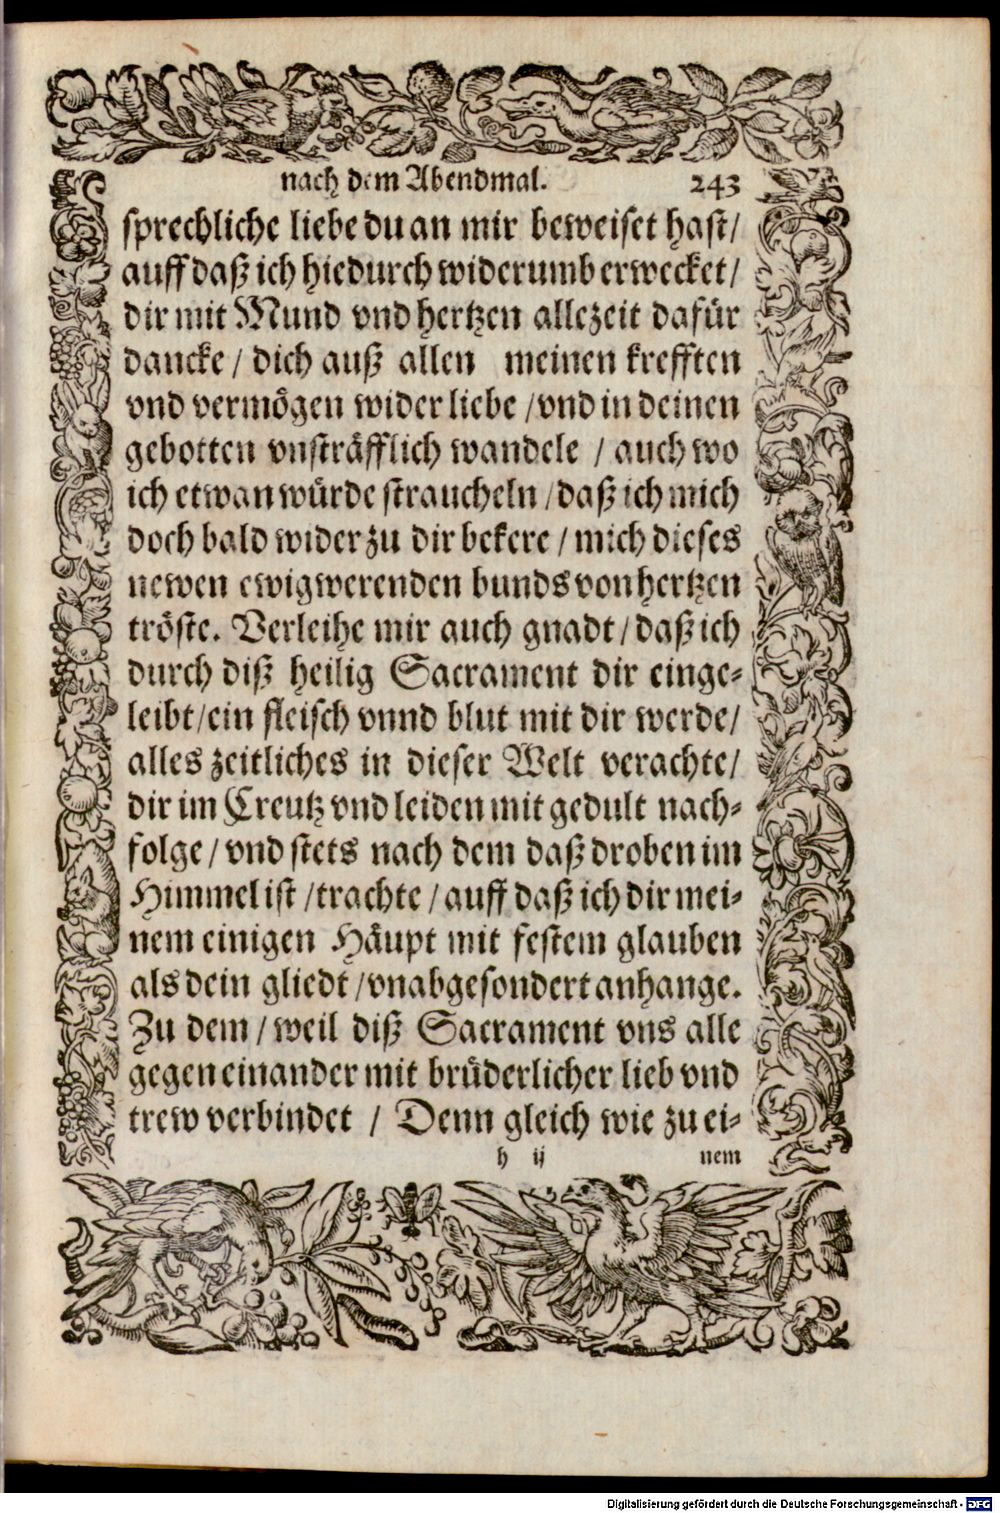 nach dem Abendmal. 243
sprechliche liebe du an mir beweiset hast/
auff daß ich hiedurch widerumb erwecket/
dir mit Mund vnd hertzen allezeit dafür
dancke / dich auß allen meinen krefften
vnd vermögen wider liebe / vnd in deinen
gebotten vnsträfflich wandele / auch wo
ich etwan würde straucheln / daß ich mich
doch bald wider zu dir bekere / mich dieses
newen ewigwerenden bunds von hertzen
tröste. Verleihe mir auch gnadt / daß ich
durch diß heilig Sacrament dir einge-
leibt / ein fleisch vnnd blut mit dir werde/
alles zeitliches in dieser Welt verachte/
dir im Creutz vnd leiden mit gedult nach-
folge / vnd stets nach dem daß droben im
Himmel ist / trachte / auff daß ich dir mei-
nem einigen Häupt mit festem glauben
als dein gliedt / vnabgesondert anhange.
Zu dem / weil diß Sacrament vns alle
gegen einander mit brüderlicher lieb vnd
trew verbindet / Denn gleich wie zu ei-
h ij nem
Digitalisierung gefördert durch die Deutsche Forschungsgemeinschaft - DFG